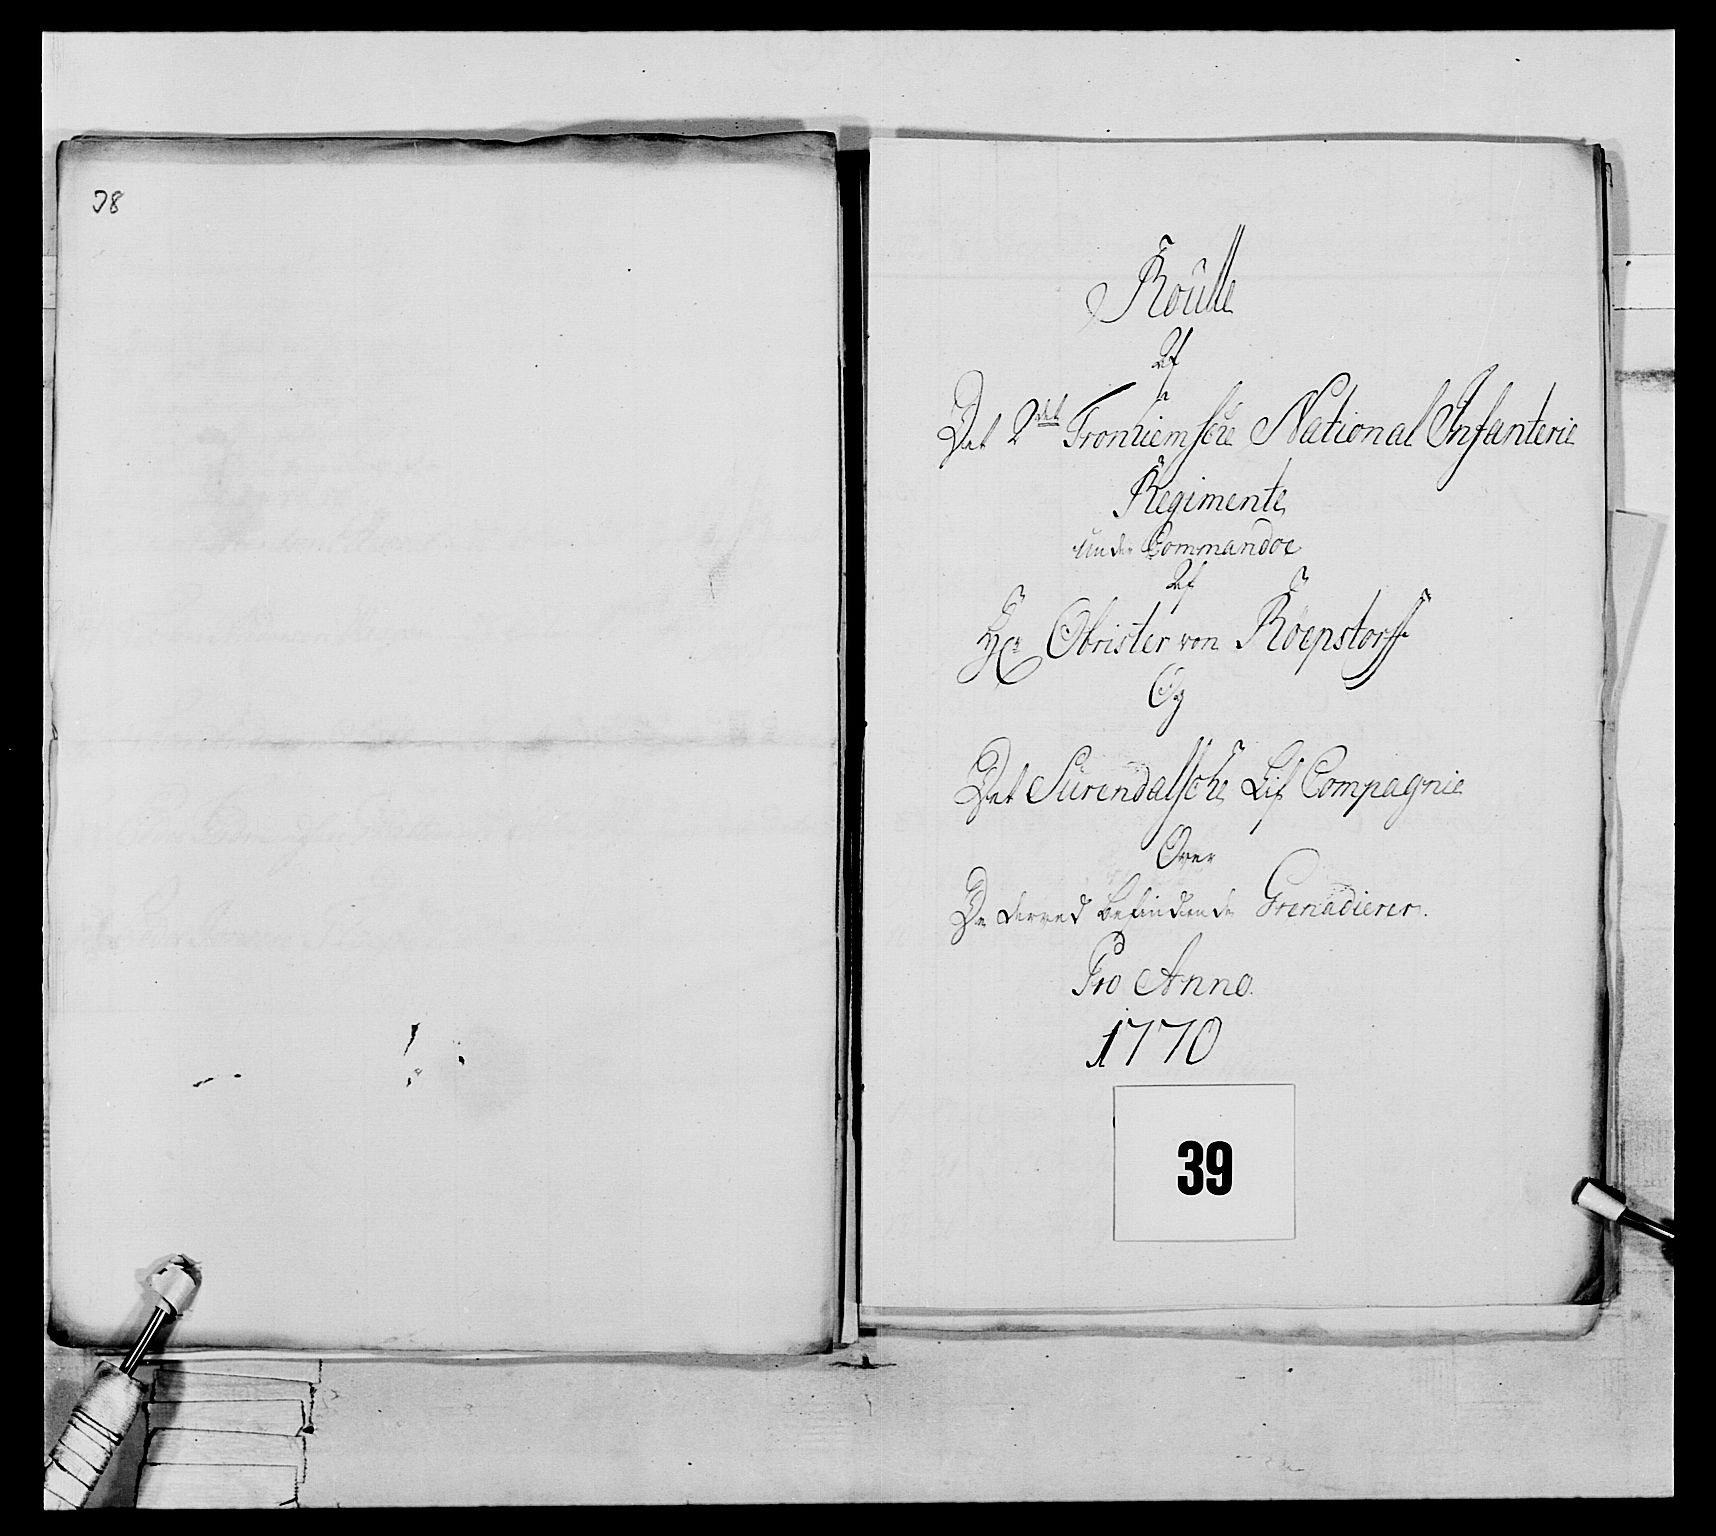 38
Roulle
Af
Det 2det Tronhiemsche National Infanterie
Regimente
Under Commandoe
Af
Hr Obrister von Röepstorff
Og
Det Surendalsche Lif Compagnie
Over
De derved befindende Grenadierer.
Pro Anno
1770
39